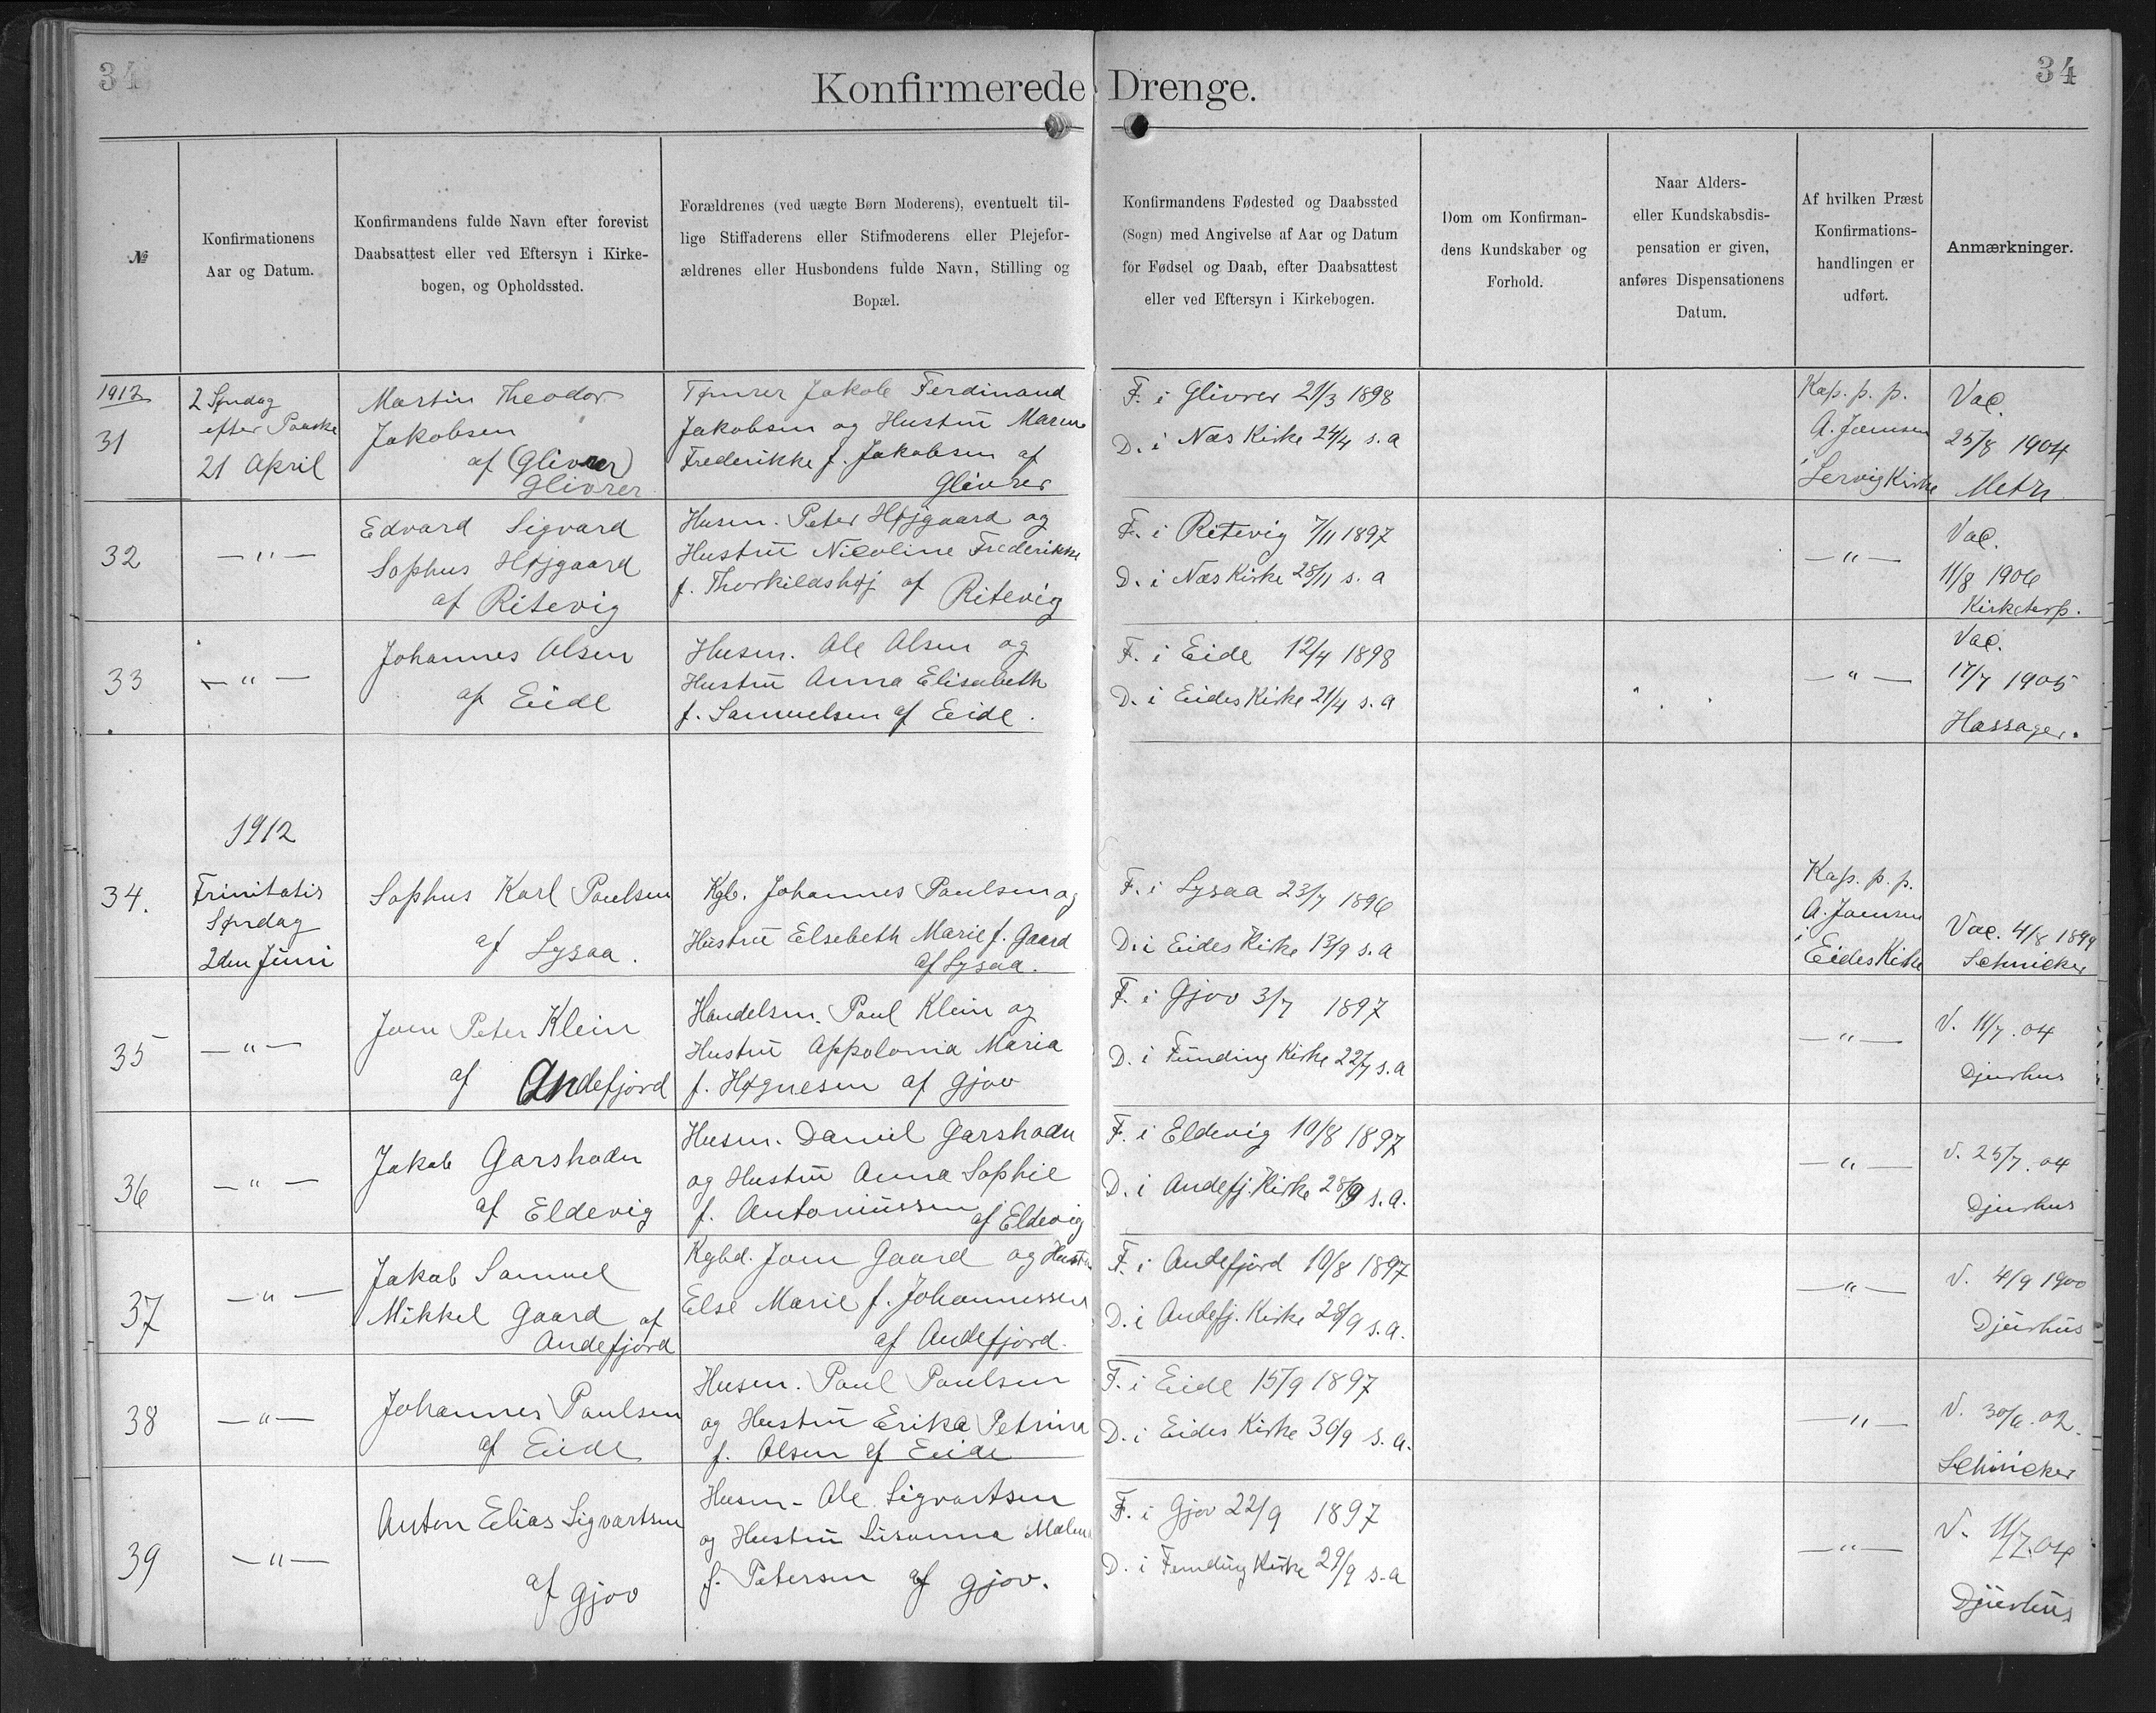 34
Konfirmerede Drenge.
34
№
Konfirmationens
Aar og Datum.
Konfirmandens fulde Navn efter forevist
Daabsattest eller ved Eftersyn i Kirke-
bogen, og Opholdssted.
Forældrenes (ved uægte Børn Moderens), eventuelt til-
lige Stiffaderens eller Stifmoderens eller Plejefor-
ældrenes eller Husbondens fulde Navn, Stilling og
Bopæl.
Konfirmandens Fødested og Daabssted
(Sogn) med Angivelse af Aar og Datum
for Fødsel og Daab, efter Daabsattest
eller ved Eftersyn i Kirkebogen.
Dom om Konfirman-
dens Kundskaber og
Forhold.
Naar Alders-
eller Kundskabsdis-
pensation er given,
anføres Dispensationens
Datum.
Af hvilken Præst
Konfirmations-
handlingen er
udført.
Anmærkninger.
1912
31
2 Søndag
efter Paaske
21 April
Martin Theodor
Jakobsen
af (Glivrer)
Glivrer
Tømrer Jakob Ferdinand
Jakobsen og Hustru Maren
Frederikke f. Jakobsen af
Glivrer
F. i Glivrer 21/3 1898
D. i Næs Kirke 24/4 s. a
Kap. p. p.
A. Joensen
i
Servig Kirke
Vac.
25/8 1904
Metz
32
—„—
Edvard Sigvard
Sophus Højgaard
af Ritevig
Husm. Peter Højgaard og
Hustru Nicoline Frederikke
f. Thorkildshøj af Ritevig
F. i Ritevig 7/11 1897
D. i Næs Kirke 28/11 s. a
—„—
Vac.
11/8 1906
Kirketerp.
33
—„—
Johannes Olsen
af Eide
Husm. Ole Olsen og
Hustru Anna Elisabeth
f. Samuelsen af Eide.
F. i Eide 12/4 1898
D. i Eides Kirke 21/4 s. a
—„—
Vac.
17/7 1905
Hassager.
1912
34.
Trinitatis
Søndag
2den Juni
Sophus Karl Poulsen
af Lysaa.
Kgb. Johannes Poulsen og
Hustru Elsebeth Marie f. Gaard
af Lysaa.
F. i Lysaa 23/7 1896
D. i Eides Kirke 13/9 s. a
Kap. p. p.
A. Joensen
i
Eides Kirke
Vac. 4/8 1899
Schnicker
35
—„—
Joen Peter Klein
af Andefjord
Handelsm. Poul Klein og
Hustru Appolonia Maria
f. Høgnesen af Gjov
F. i Gjov 3/7 1897
D. i Funding Kirke 22/7 s. a
—„—
V. 11/7. 04
Djurhus
36
—„—
Jakob Garshodn
af Eldevig
Husm. Daniel Garshodn
og Hustru Anna Sophie
f. Antoniussen
af Eldevig
F. i Eldevig 10/8 1897
D. i Andefj. Kirke 28/9 s. a.
—„—
V. 25/7. 04
Djurhus
37
—„—
Jakob Samuel
Mikkel Gaard af
Andefjord
Kgbd. Joen Gaard og Hustru
Else Marie f. Johannessen
af Andefjord.
F. i Andefjord 10/8 1897
D. i Andefj. Kirke 28/9 s. a.
—„—
V. 4/9 1900
Djurhus
38
—„—
Johannes Poulsen
af Eide
Husm. Poul Poulsen
og Hustru Erika Petrina
f. Olsen af Eide
F. i Eide 15/9 1897
D. i Eides Kirke 30/9 s. a.
—„—
V. 30/6. 02.
Schnicker
39
—„—
Anton Elias Sigvartsen
af Gjov
Husm. Ole Sigvartsen
og Hustru Susanna Malene
f. Petersen af Gjov.
F. i Gjov 22/9 1897
D. i Funding Kirke 29/9 s. a
—„—
V. 11/7. 04
Djurhus